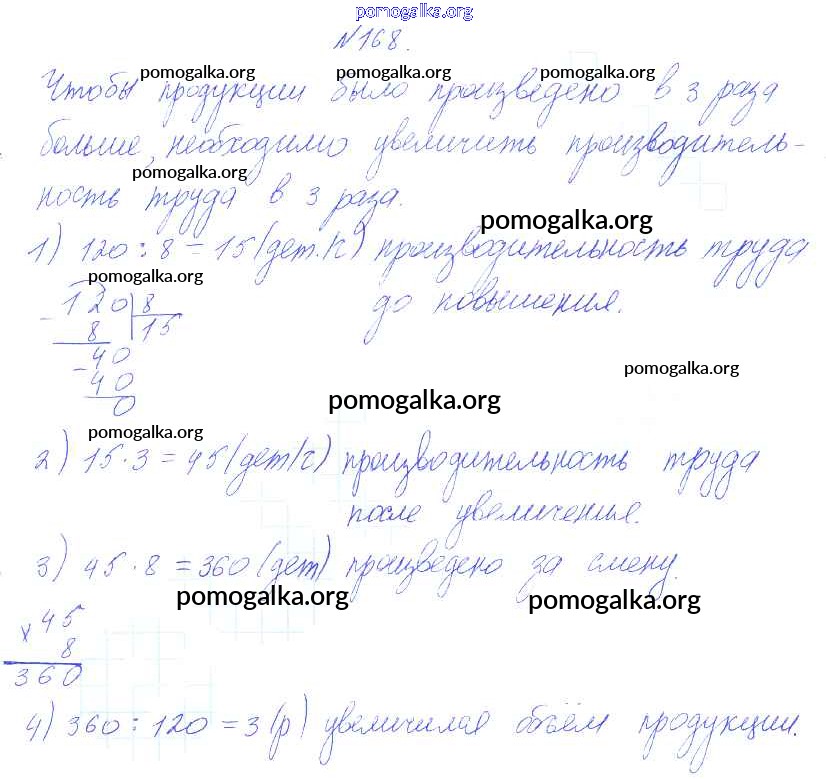 pomogalka.org
№168.
pomogalka.org pomogalka.org pomogalka.org
Чтобы продукции было произведено в 3 раза
больше, необходимо увеличить производитель-
pomogalka.org
ность труда в 3 раза.
pomogalka.org
1) 120 : 8 = 15 (дет./ч) производительность труда
pomogalka.org
до повышения.
- 120 8
8 15
- 40
40
0
pomogalka.org
pomogalka.org
pomogalka.org
2) 15 · 3 = 45 (дет/ч) производительность труда
после увеличения.
3) 45 · 8 = 360 (дет) произведено за смену.
pomogalka.org pomogalka.org
х 45
8
360
4) 360 : 120 = 3 (р) увеличился объём продукции.